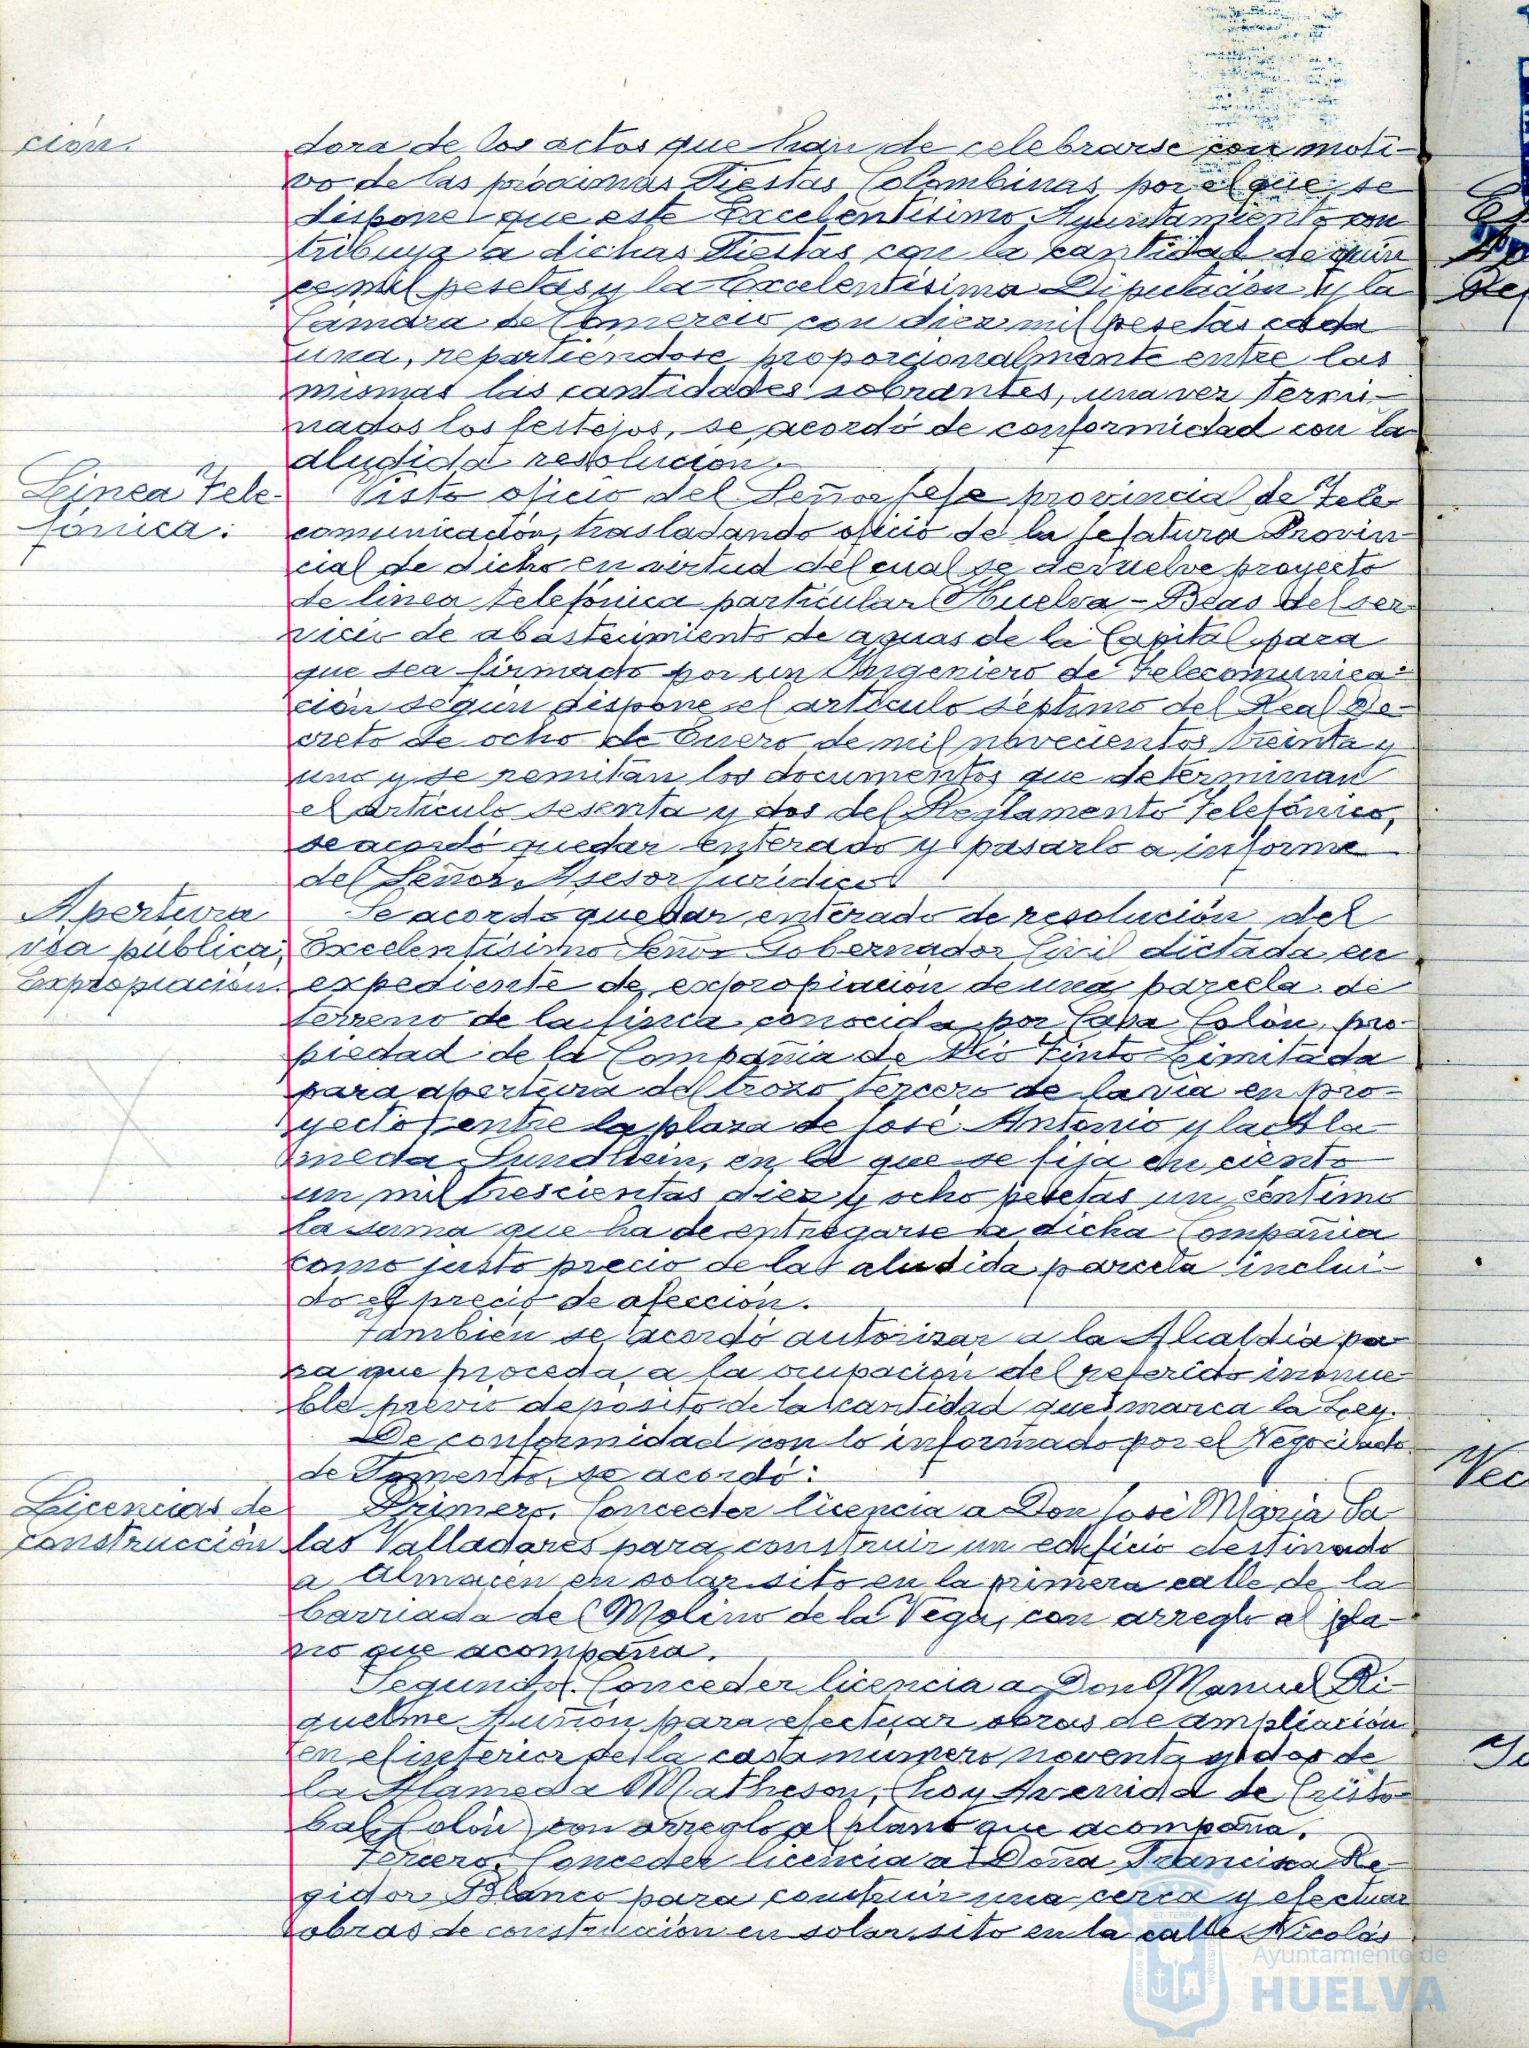 ción.
dora de los actos que han de celebrarse con moti-
vo de las próximas Fiestas Colombinas, por el que se
dispone que este Excelentísimo Ayuntamiento con
tribuya a dichas Fiestas con la cantidad de quin
ce mil pesetas y la Excelentísima Diputación y la
Cámara de Comercio con diez mil pesetas cada
una, repartiéndose proporcionalmente entre las
mismas las cantidades sobrantes, una vez termi-
nados los festejos, se acordó de conformidad con la
aludida resolución.
Línea Tele-
fónica.
Visto oficio del Señor Jefe provincial de Tele
comunicación, trasladando oficio de la Jefatura Provin-
cial de dicho, en virtud del cual se devuelve proyecto
de línea telefónica particular Huelva-Beas del ser-
vicio de abastecimiento de aguas de la Capital para
que sea firmado por un Ingeniero de Telecomunica-
ción según dispone el artículo séptimo del Real De-
creto de ocho de Enero de mil novecientos treinta y
uno y se remitan los documentos que determinan
el artículo sesenta y dos del Reglamento Telefónico,
se acordó quedar enterado y pasarlo a informe
del Señor Asesor Jurídico.
Apertura
vía pública;
Expropiación.
Se acordó quedar enterado de resolución del
Excelentísimo Señor Gobernador Civil dictada en
expediente de expropiación de una parcela de
terreno de la finca conocida por Casa Colón, pro-
piedad de la Compañía de Río Tinto Limitada
para apertura del trozo tercero de la vía en pro-
yecto entre la plaza de José Antonio y la Ala-
meda Sundhein, en la que se fija en ciento
un mil trescientas diez y ocho pesetas un céntimo
la suma que ha de entregarse a dicha Compañía
como justo precio de la aludida parcela inclui-
do el precio de afección.
También se acordó autorizar a la Alcaldía pa-
ra que proceda a la ocupación del referido inmue-
ble previo depósito de la cantidad que marca la Ley.
De conformidad con lo informado por el Negociado
de Fomento, se acordó:
Licencias de
construcción
Primero. Conceder licencia a Don José María Sa
las Valladares para construir un edificio destinado
a Almacén en solar sito en la primera calle de la
barriada del Molino de la Vega, con arreglo al pla-
no que acompaña.
Segundo. Conceder licencia a Don Manuel Ri-
quelme Auñón para efectuar obras de ampliación
en el interior de la casa número noventa y dos de
la Alameda Matheson, (hoy Avenida de Cristó-
bal Colón) con arreglo al plano que acompaña.
Tercero. Conceder licencia a Doña Francisca Re-
gidor Blanco para construir una cerca y efectuar
obras de construcción en solar sito en la calle Nicolás
Ayuntamiento de
HUELVA
Vec